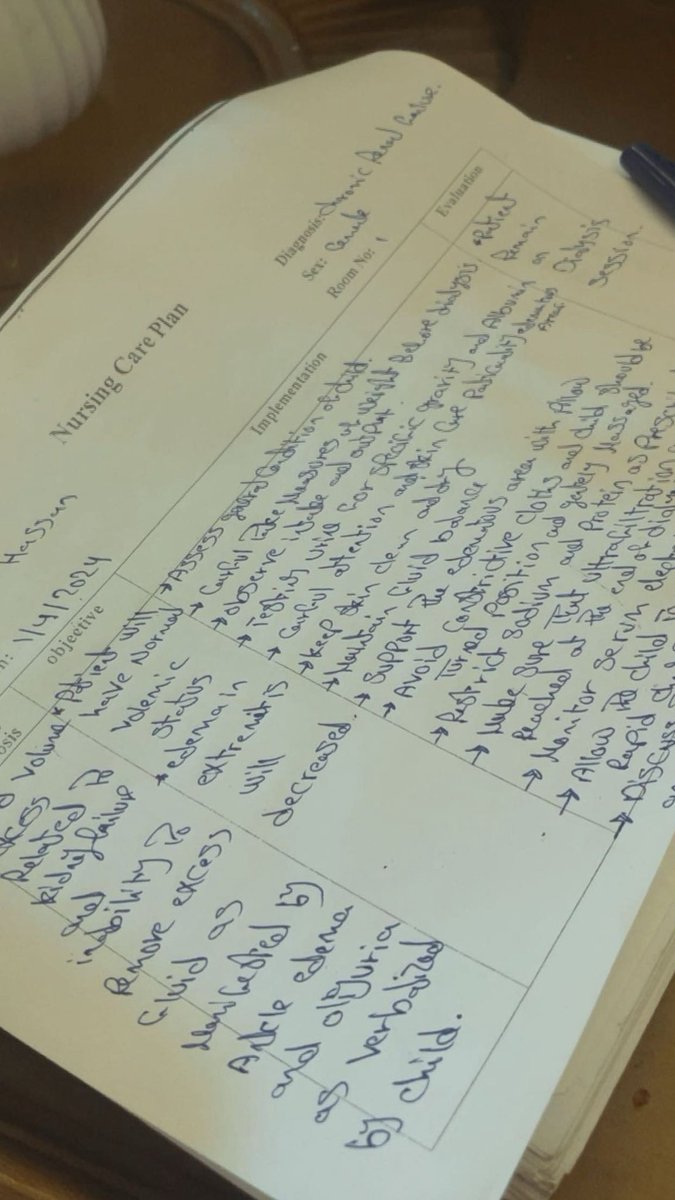 Nursing Care Plan
Hassan
n: 1/4/2024
Diagnosis: chronic Renal failure.
Sex:
Room No: 1
osis
objective
Implementation
Evaluation
Volume
excess
Related to
kidney failure
and
inability to
Remove excess
fluid as
Manifested by
Ankle edema
and oliguria
as verbalized
by child.
* Patient will
have Normal
volemic
status
* edema in
extremities
will
decreased.
→ Assess general Condition of child.
→ Carful take Measures of weight Before dialysis
→ observe intake and output.
→ Testing urine for specific gravity and Albumin
→ Carful attention and skin Care Paticulality edematous
Areas
→ Keep skin clean and dry
→ Maintain fluid balance
→ Support The edematous area with
→ Avoid Constrictive cloths and child should be
Turned Position and gately Massaged.
→ Restrict Sodium and Protein as
→ Make sure That ultrafiltration
Reached at The end of
→ Monitor Serum
→ Allow The child To
Rapid
→ Discuss
* Patient
Remain
on
Dialysis
session.